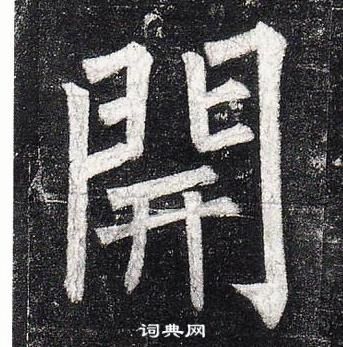 開
词典网